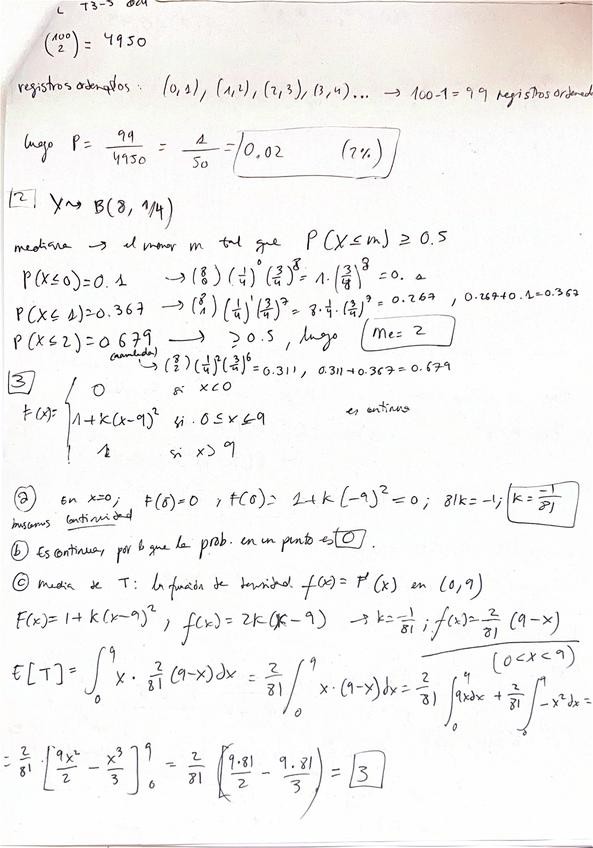 T3-5
(100 2) = 4950
registros ordenados: (0,1), (1,2), (2,3), (3,4)... → 100-1=99 registros ordenad
luego P = 99/4950 = 1/50 = 0.02 (2%)
2 X ~> B(8, 1/4)
mediana → el menor m tal que P(X≤m) ≥ 0.5
P(X≤0)=0.1 → (8 0) (1/4)^0 (3/4)^8 = 1·(3/4)^8 = 0.1
P(X≤1)=0.367 → (8 1) (1/4)^1 (3/4)^7 = 8·1/4·(3/4)^7 = 0.267, 0.267+0.1=0.367
P(X≤2)=0.679 → ≥0.5, luego Me=2
(acumulada) ↳ (8 2) (1/4)^2 (3/4)^6 = 0.311, 0.311+0.367=0.679
3
0 si x<0
F(x)= 1+k(x-9)^2 si 0≤x≤9 es continua
1 si x>9
a En x=0; F(0)=0, F(0)= 1+k(-9)^2=0; 81k=-1; k=-1/81
buscamos continuidad
b Es continua, por lo que la prob. en un punto es 0.
c Media de T: la función de densidad f(x)=F'(x) en (0,9)
F(x)=1+k(x-9)^2, f(x)=2k(x-9) → k=-1/81; f(x)=2/81 (9-x)
(0<x<9)
E[T]= ∫_0^9 x·2/81 (9-x)dx = 2/81 ∫_0^9 x·(9-x)dx = 2/81 ∫_0^9 9xdx + 2/81 ∫_0^9 -x^2dx =
= 2/81 · [9x^2/2 - x^3/3]_0^9 = 2/81 (9·81/2 - 9·81/3) = 3